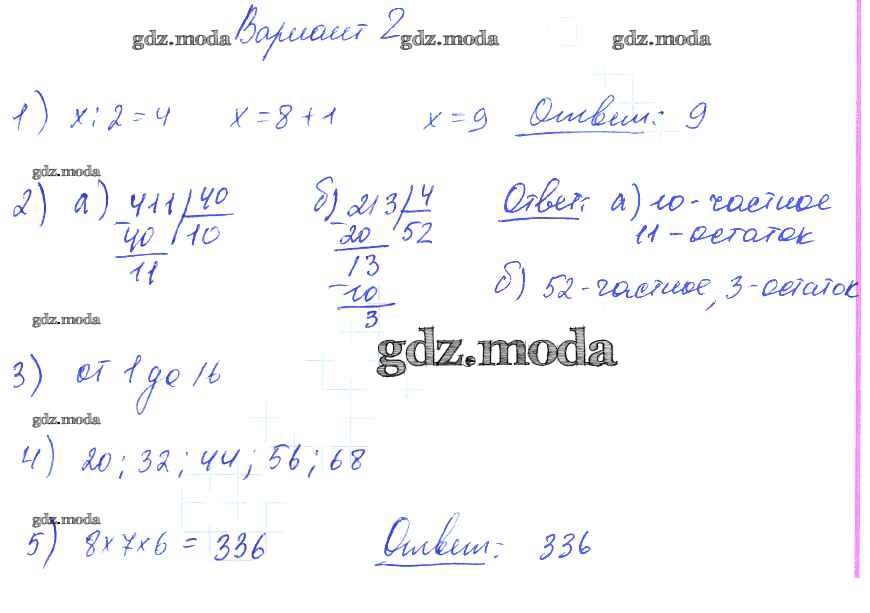 Вариант 2
gdz.moda gdz.moda gdz.moda
1) x:2=4 x=8+1 x=9 Ответ: 9
gdz.moda
2) а) 411 40 б) 213 4 Ответ: а) 10-частное
-40 10 -20 52 11-остаток
11 13
-10 б) 52-частное, 3-остаток
3
gdz.moda
gdz.moda
3) от 1 до 16
gdz.moda
4) 20; 32; 44; 56; 68
gdz.moda
5) 8×7×6 = 336 Ответ: 336